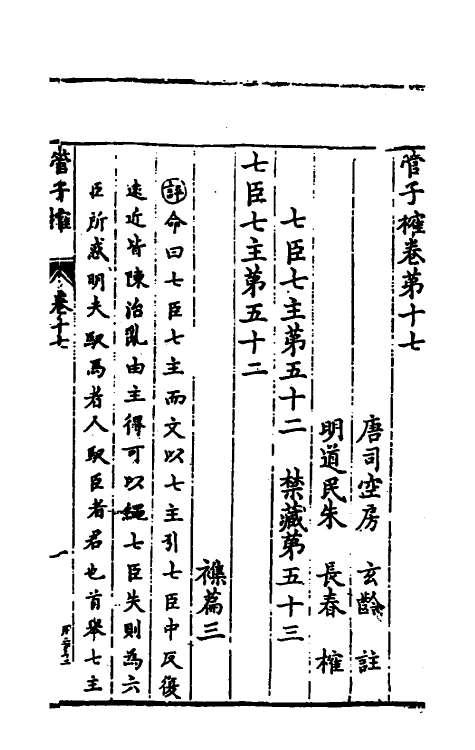 管子榷卷第十七
唐司空房 玄齡 註
明道民朱 長春 榷
七臣七主第五十二 禁藏第五十三
七臣七主第五十二
襍篇三
評命曰七臣七主而文以七主引七臣中反復
遠近皆陳治亂由主得可以繩七臣失則為六
臣所惑明夫馭馬者人馭臣者君也首舉七主
管子榷 卷十七 一